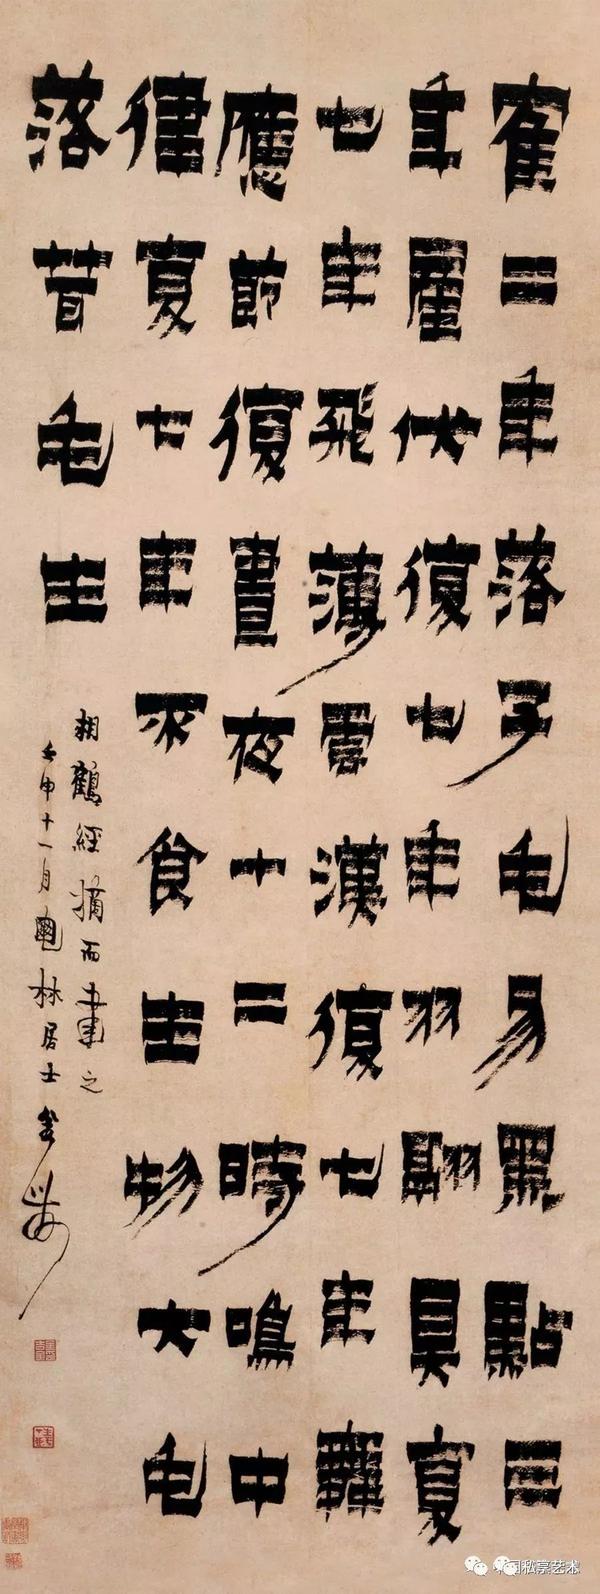 寉二年落子毛易黑點三
年產伏復七年羽翮具复
七年飛薄雲漢復七年舞
應節復晝夜十二時鳴中
律复七年不食生物大毛
落茸毛生
相鶴經摘而書之
壬申十一月林居士金
国私享艺术